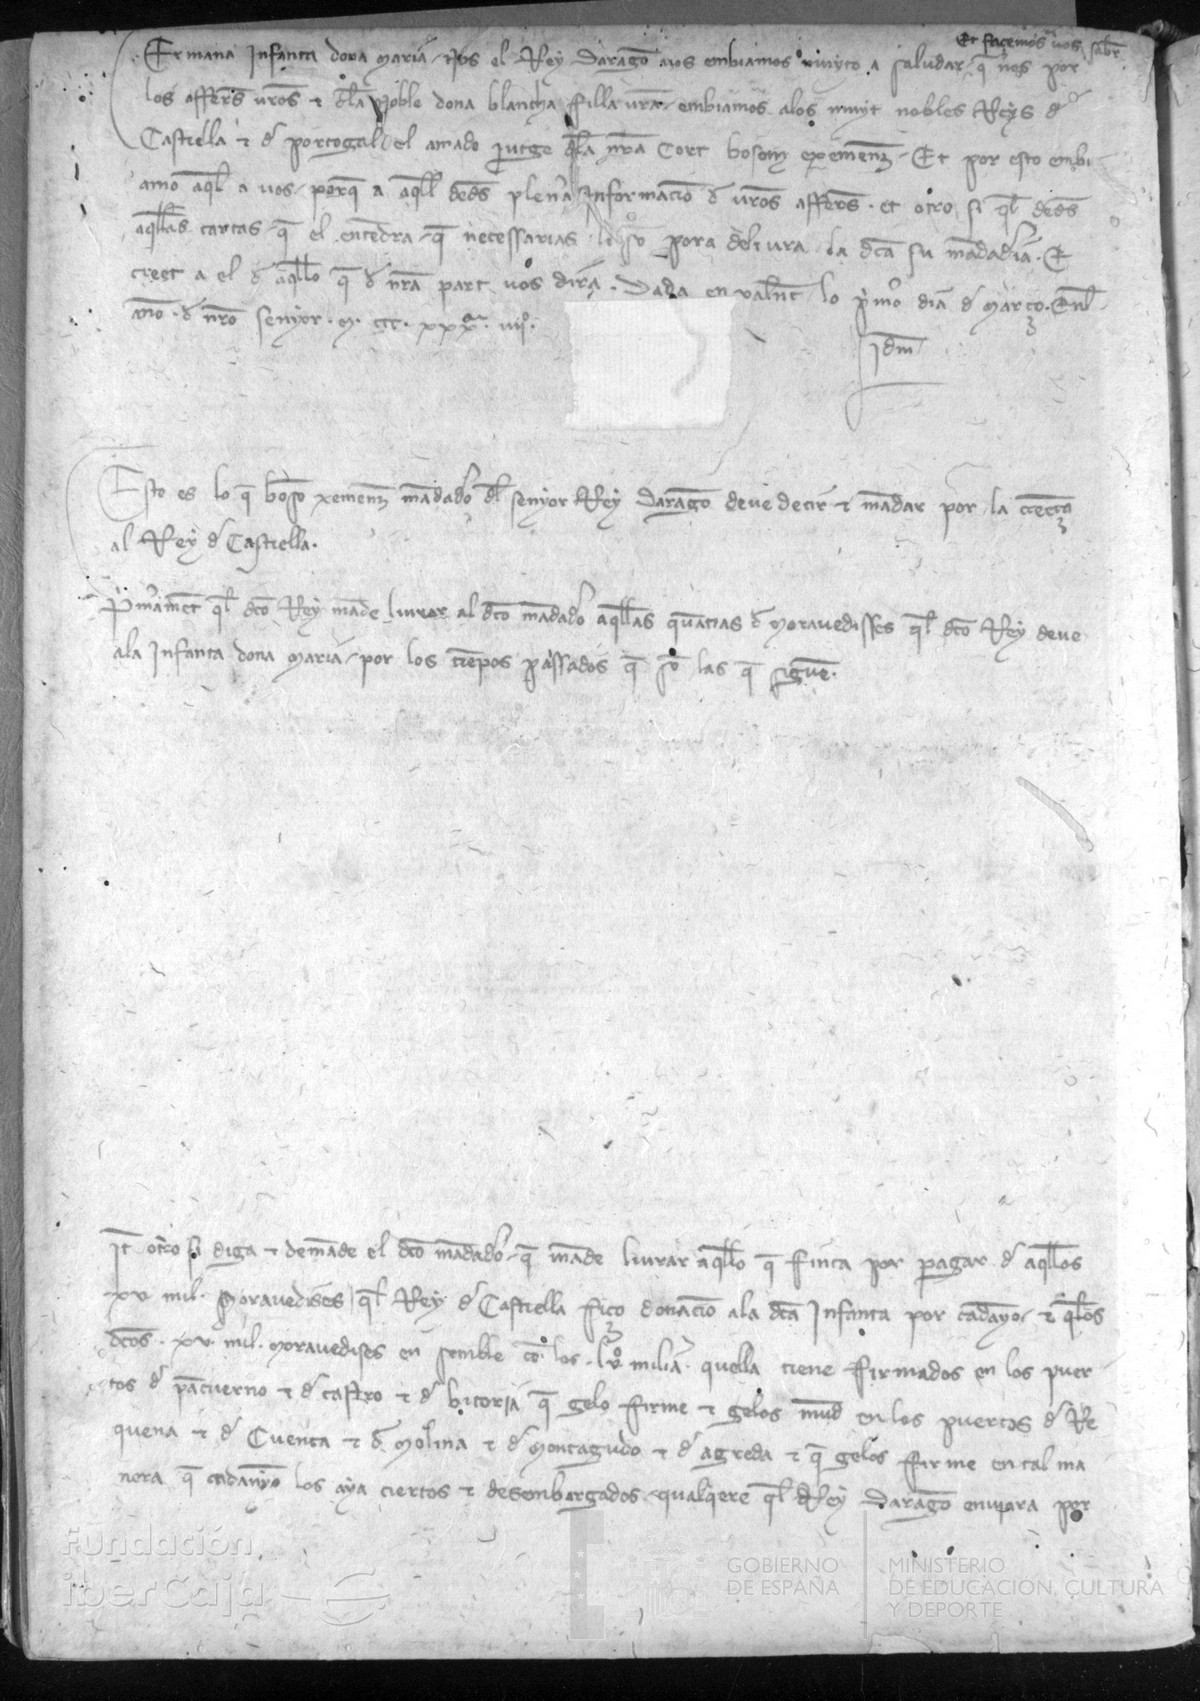 Et facemos vos saber
Ermana Infanta dona maria. Nos el Rey Darago avos embiamos muyto a saludar. q̄ nos por
los affers vr̄os τ d̄la noble dona blancha filla vr̄a. embiamos alos muyt nobles Reys d̄
Castiella τ d̄ portogal. el amado jutge d̄la nr̄a Cort boson exemen̄z. Et por esto embi
amo aq̄l a vos. porq̄ a aq̄ll dedes plen̄a informacio d̄ vr̄os affers. et otro si q̄l dedes
aq̄llas cartas. q̄ el entedra q̄ necessarias li so pora deliura la dc̄a su madadia. Et
creet a el d̄ aq̄llo q̄ d̄ nr̄a part vos dira. Dada en val̄nc lo p̄mo dia d̄ março. Enl
anno. d̄ nr̄o senyor. m. ccc. xxx. viij.
Idm
Esto es lo q̄ boso xemen̄z madado dl senyor Rey Darago deve decir τ madar por la
al Rey d̄ Castiella.
P̄mamet q̄l dc̄o Rey made liurar al dc̄o madado aq̄llas quatias d̄ moravedisses q̄l dc̄o Rey deve
ala Infanta dona maria. por los tiepos passados q̄ so las q̄ sigue.
It otro si diga τ demade el dc̄o madado. q̄ made liurar aq̄llo q̄ finca por pagar d̄ aq̄llos
xv. mil. moravedises q̄l Rey d̄ Castiella fiço donacio ala dc̄a Infanta por cadayo. τ q̄los
dc̄os. xv. mil. moravedises en semble co los. lx milia. quella tiene firmados en los puer
tos d̄ pacuerno τ d̄ castro τ d̄ bitoria q̄ gelo firme τ gelos mud en los puertos d̄ Re
quena τ d̄ Cuenca τ d̄ Molina τ d̄ montagudo τ d̄ agreda τ q̄ gelos firme en tal ma
nera q̄ cadanyo los aya ciertos τ desembargados. qualq̄ere q̄l Rey Darago enviara por
Fundación
iberCaja
GOBIERNO
DE ESPAÑA
MINISTERIO
DE EDUCACIÓN, CULTURA
Y DEPORTE